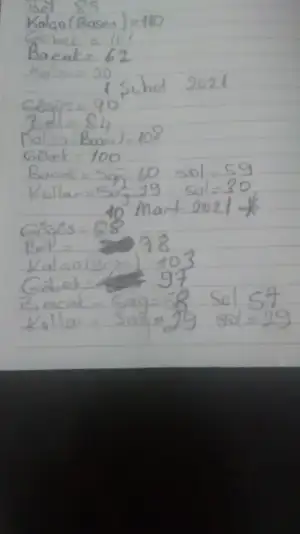 Bel 89
Kalça (Basen) = 110
Göbek = 111
Bacak = 62
1 Şubat 2021
Göğüs = 90
Bel = 84
Kalça Basen = 108
Göbek = 100
Bacak = Sağ 60 sol = 59
Kollar = Sağ 29 sol = 30
10 Mart 2021
Göğüs = 88
Bel = 98
Kalça 103
Göbek = 97
Bacak = Sağ = 58 Sol 57
Kollar = Sağ = 29 sol = 29